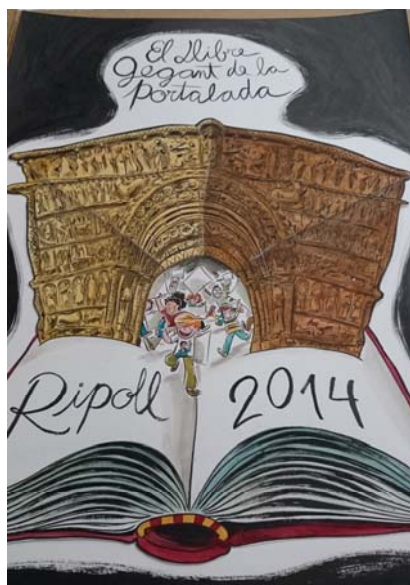 El Llibre
gegant de la
Portalada
Ripoll 2014